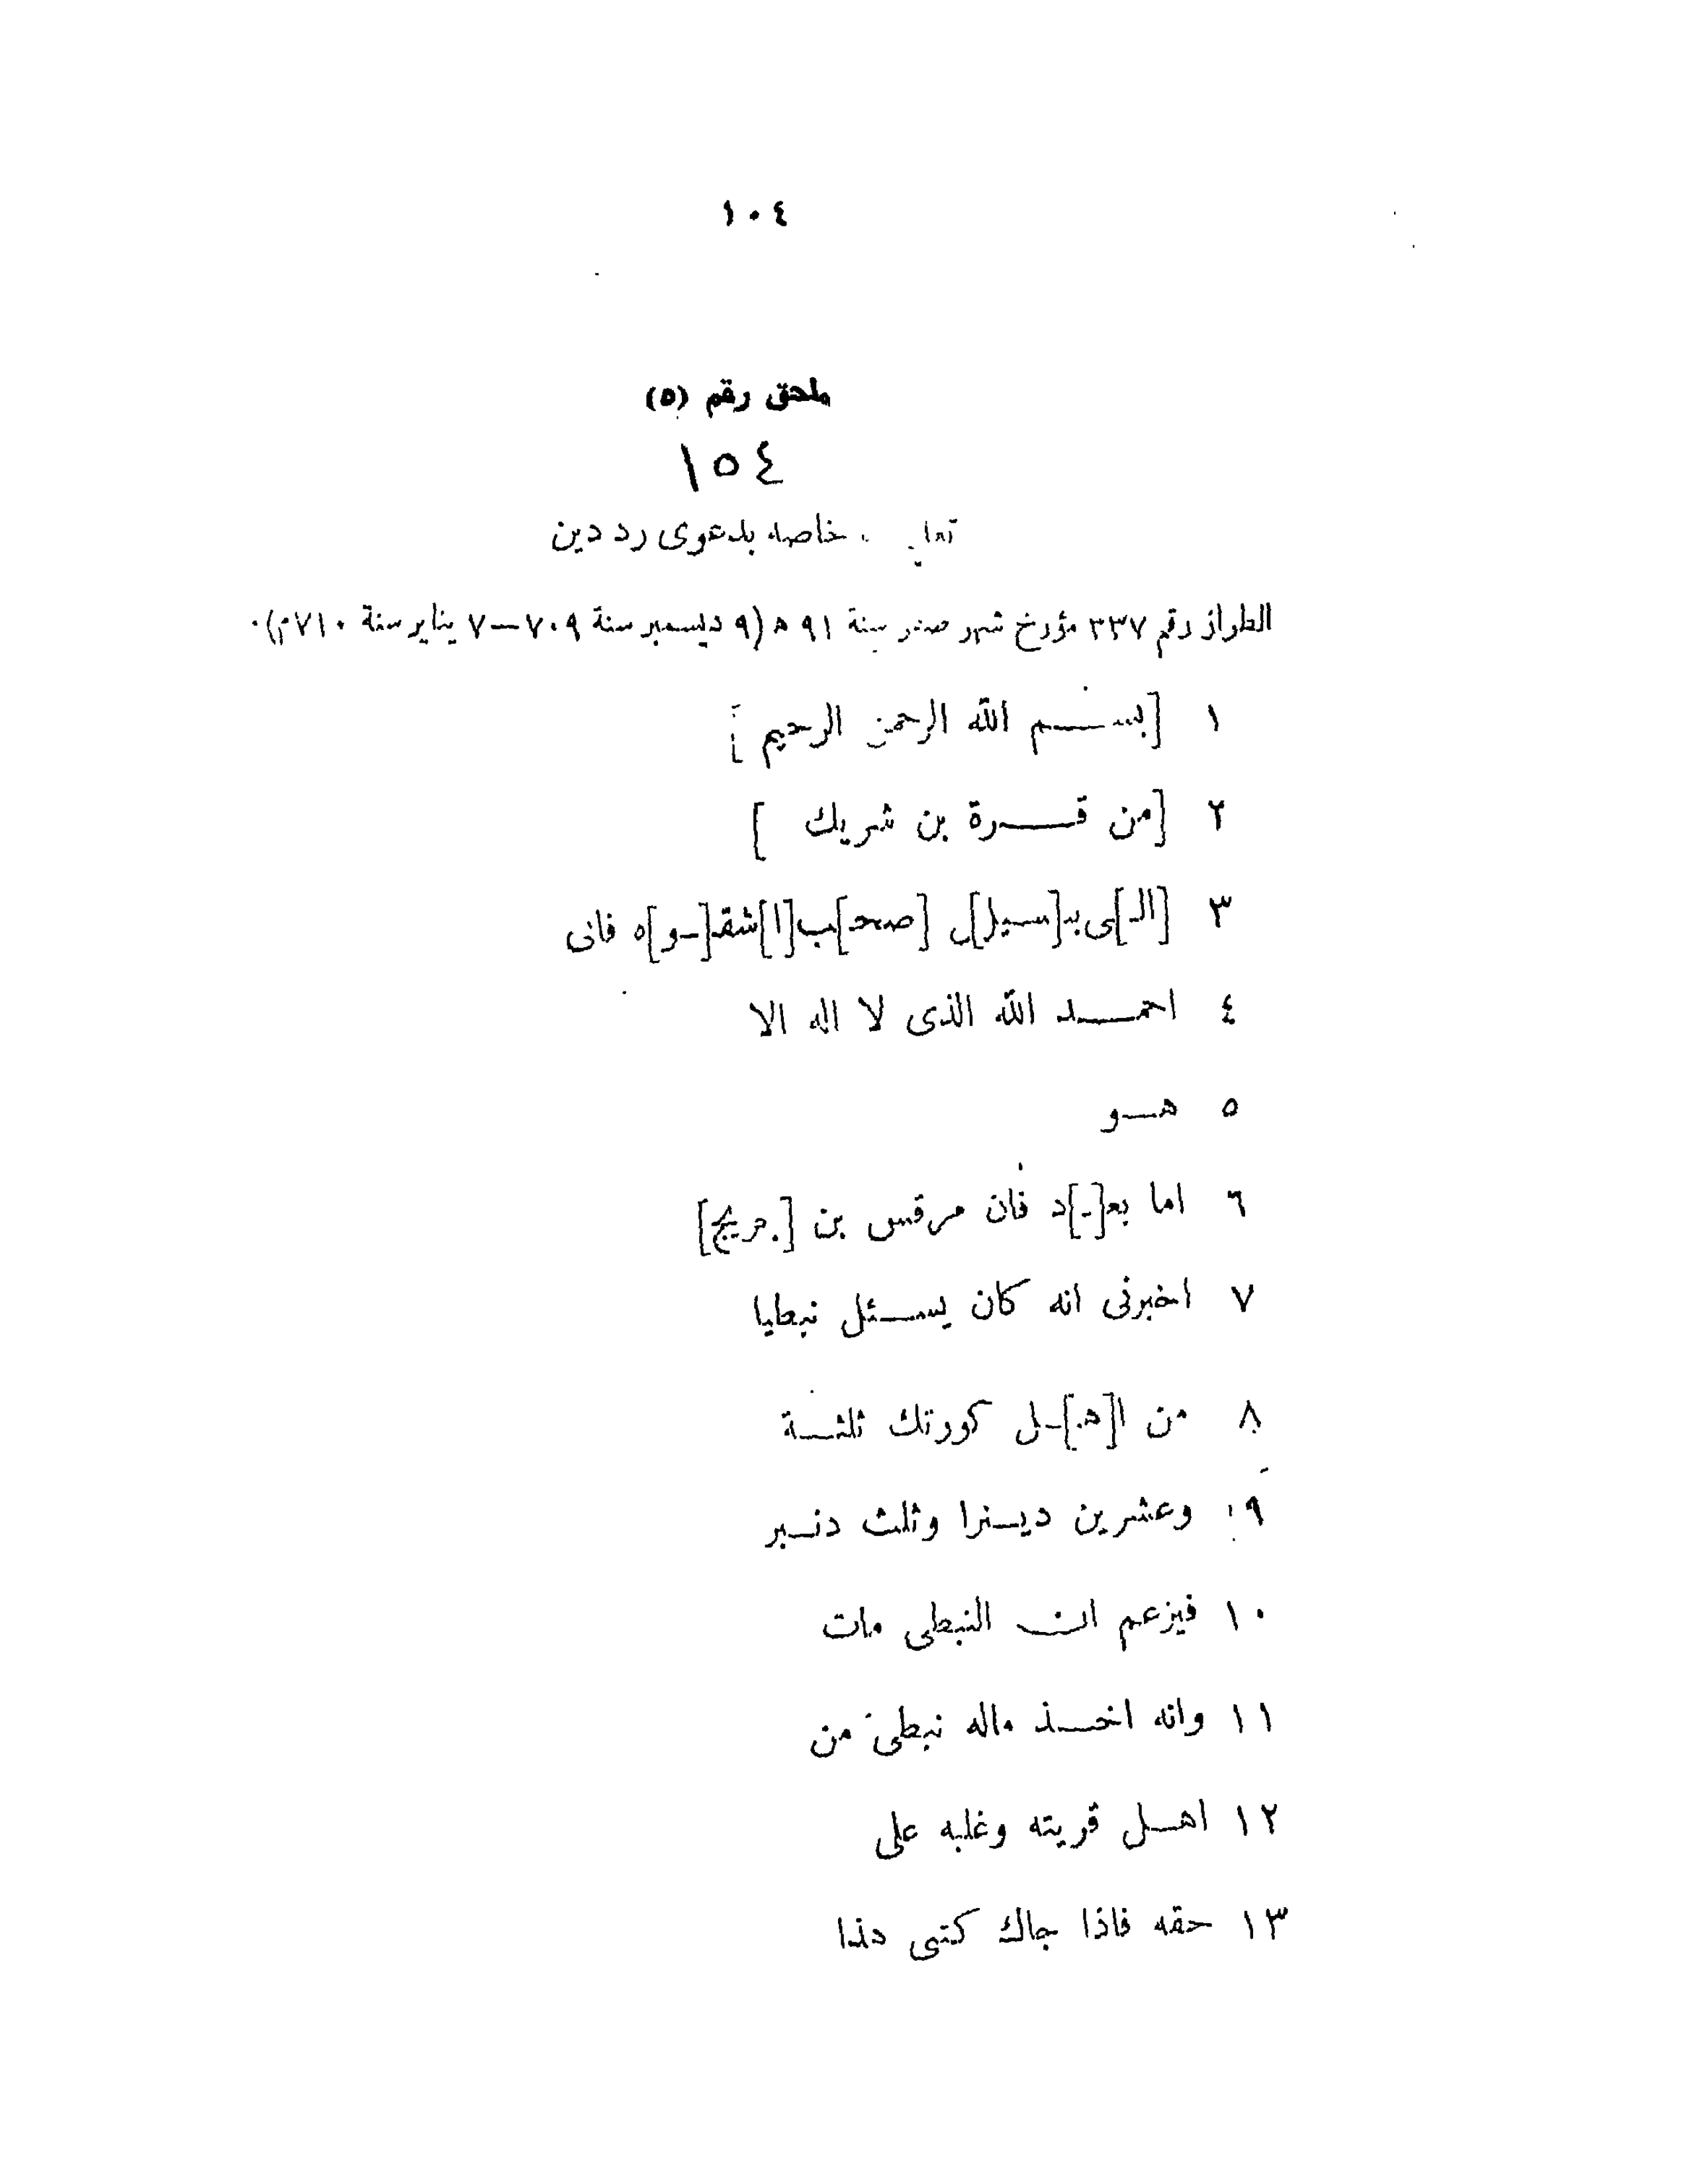 ١٠٤
ملحق رقم (٥)
١٥٤
خاصه بدعوى رد دين
الطراز رقم ٣٣٧ مؤرخ شهر صفر سنة ٩١ ه (٩ ديسمبر سنة ٧٠٩—٧ يناير سنة ٧١٠م)٠
١ [بسم الله الرحمن الرحيم]
٢ [من قرة بن شريك ]
٣ [الـ]ى بـ[سيل]ل [صحـ]ب[ا]شقـ[ـو]ه فانى
٤ احمد الله الذى لا اله الا
٥ هو
٦ اما بعـ[ـ]د فان مرقس بن [جريج]
٧ اخبرنى انه كان يسئل نبطيا
٨ من ا[هـ]ـل كورتك ثلثة
٩ وعشرين دينرا وثلث دنبر
١٠ فيزعم ان النبطى مات
١١ وانه اخذ ماله نبطى من
١٢ اهل قريته وغلبه على
١٣ حقه فاذا جاك كتبى هذا